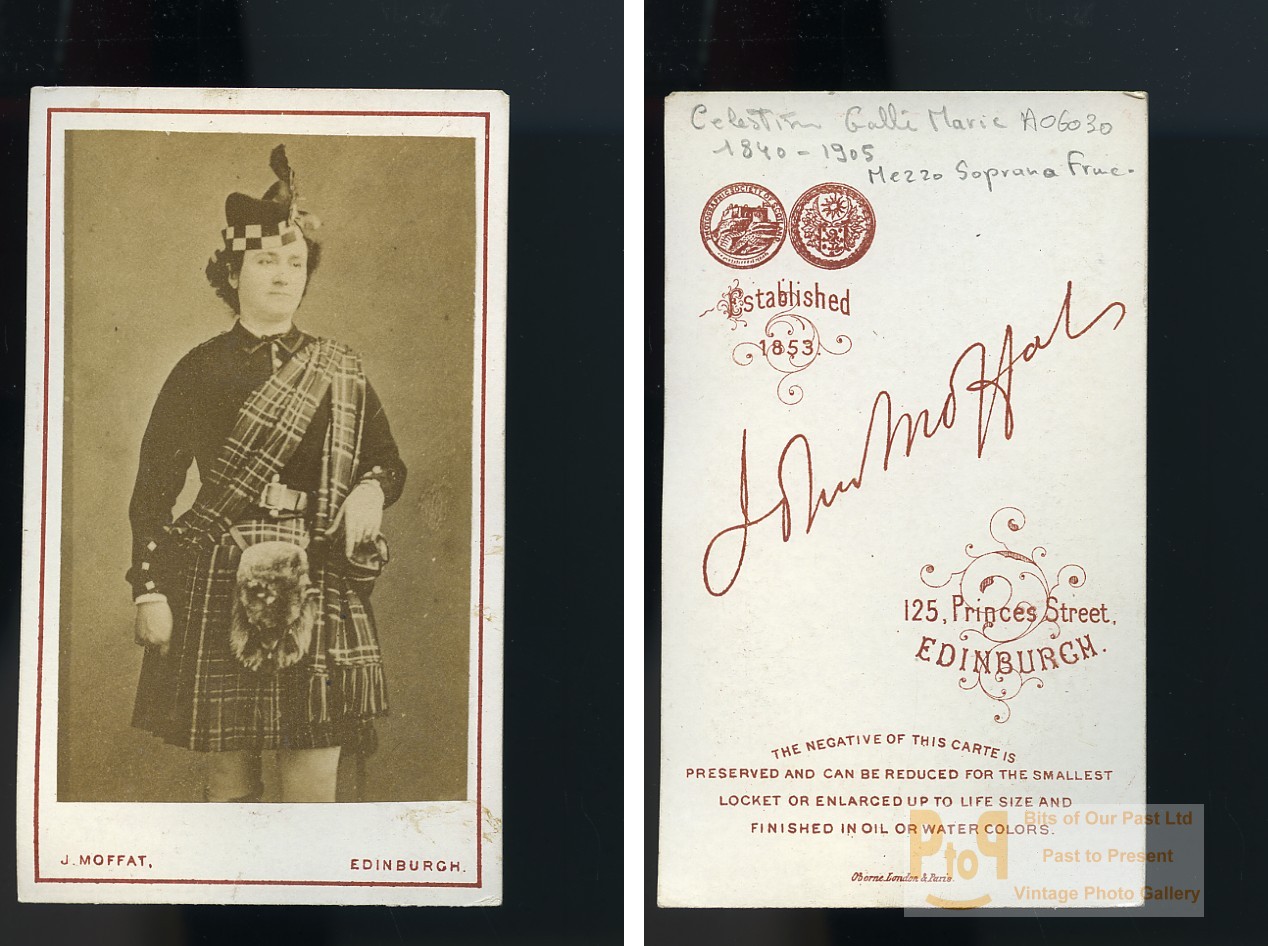 J. MOFFAT,
EDINBURGH.
Celestin Galli Marie A06030
1840 - 1905
Mezzo Soprana Frnc.
PHOTOGRAPHIC SOCIETY OF SCOTLAND
Established
1853.
John Moffat
125, Princes Street,
EDINBURGH.
THE NEGATIVE OF THIS CARTE IS
PRESERVED AND CAN BE REDUCED FOR THE SMALLEST
LOCKET OR ENLARGED UP TO LIFE SIZE AND
FINISHED IN OIL OR WATER COLORS.
Oborne London & Paris.
PtoP
Bits of Our Past Ltd
Past to Present
Vintage Photo Gallery